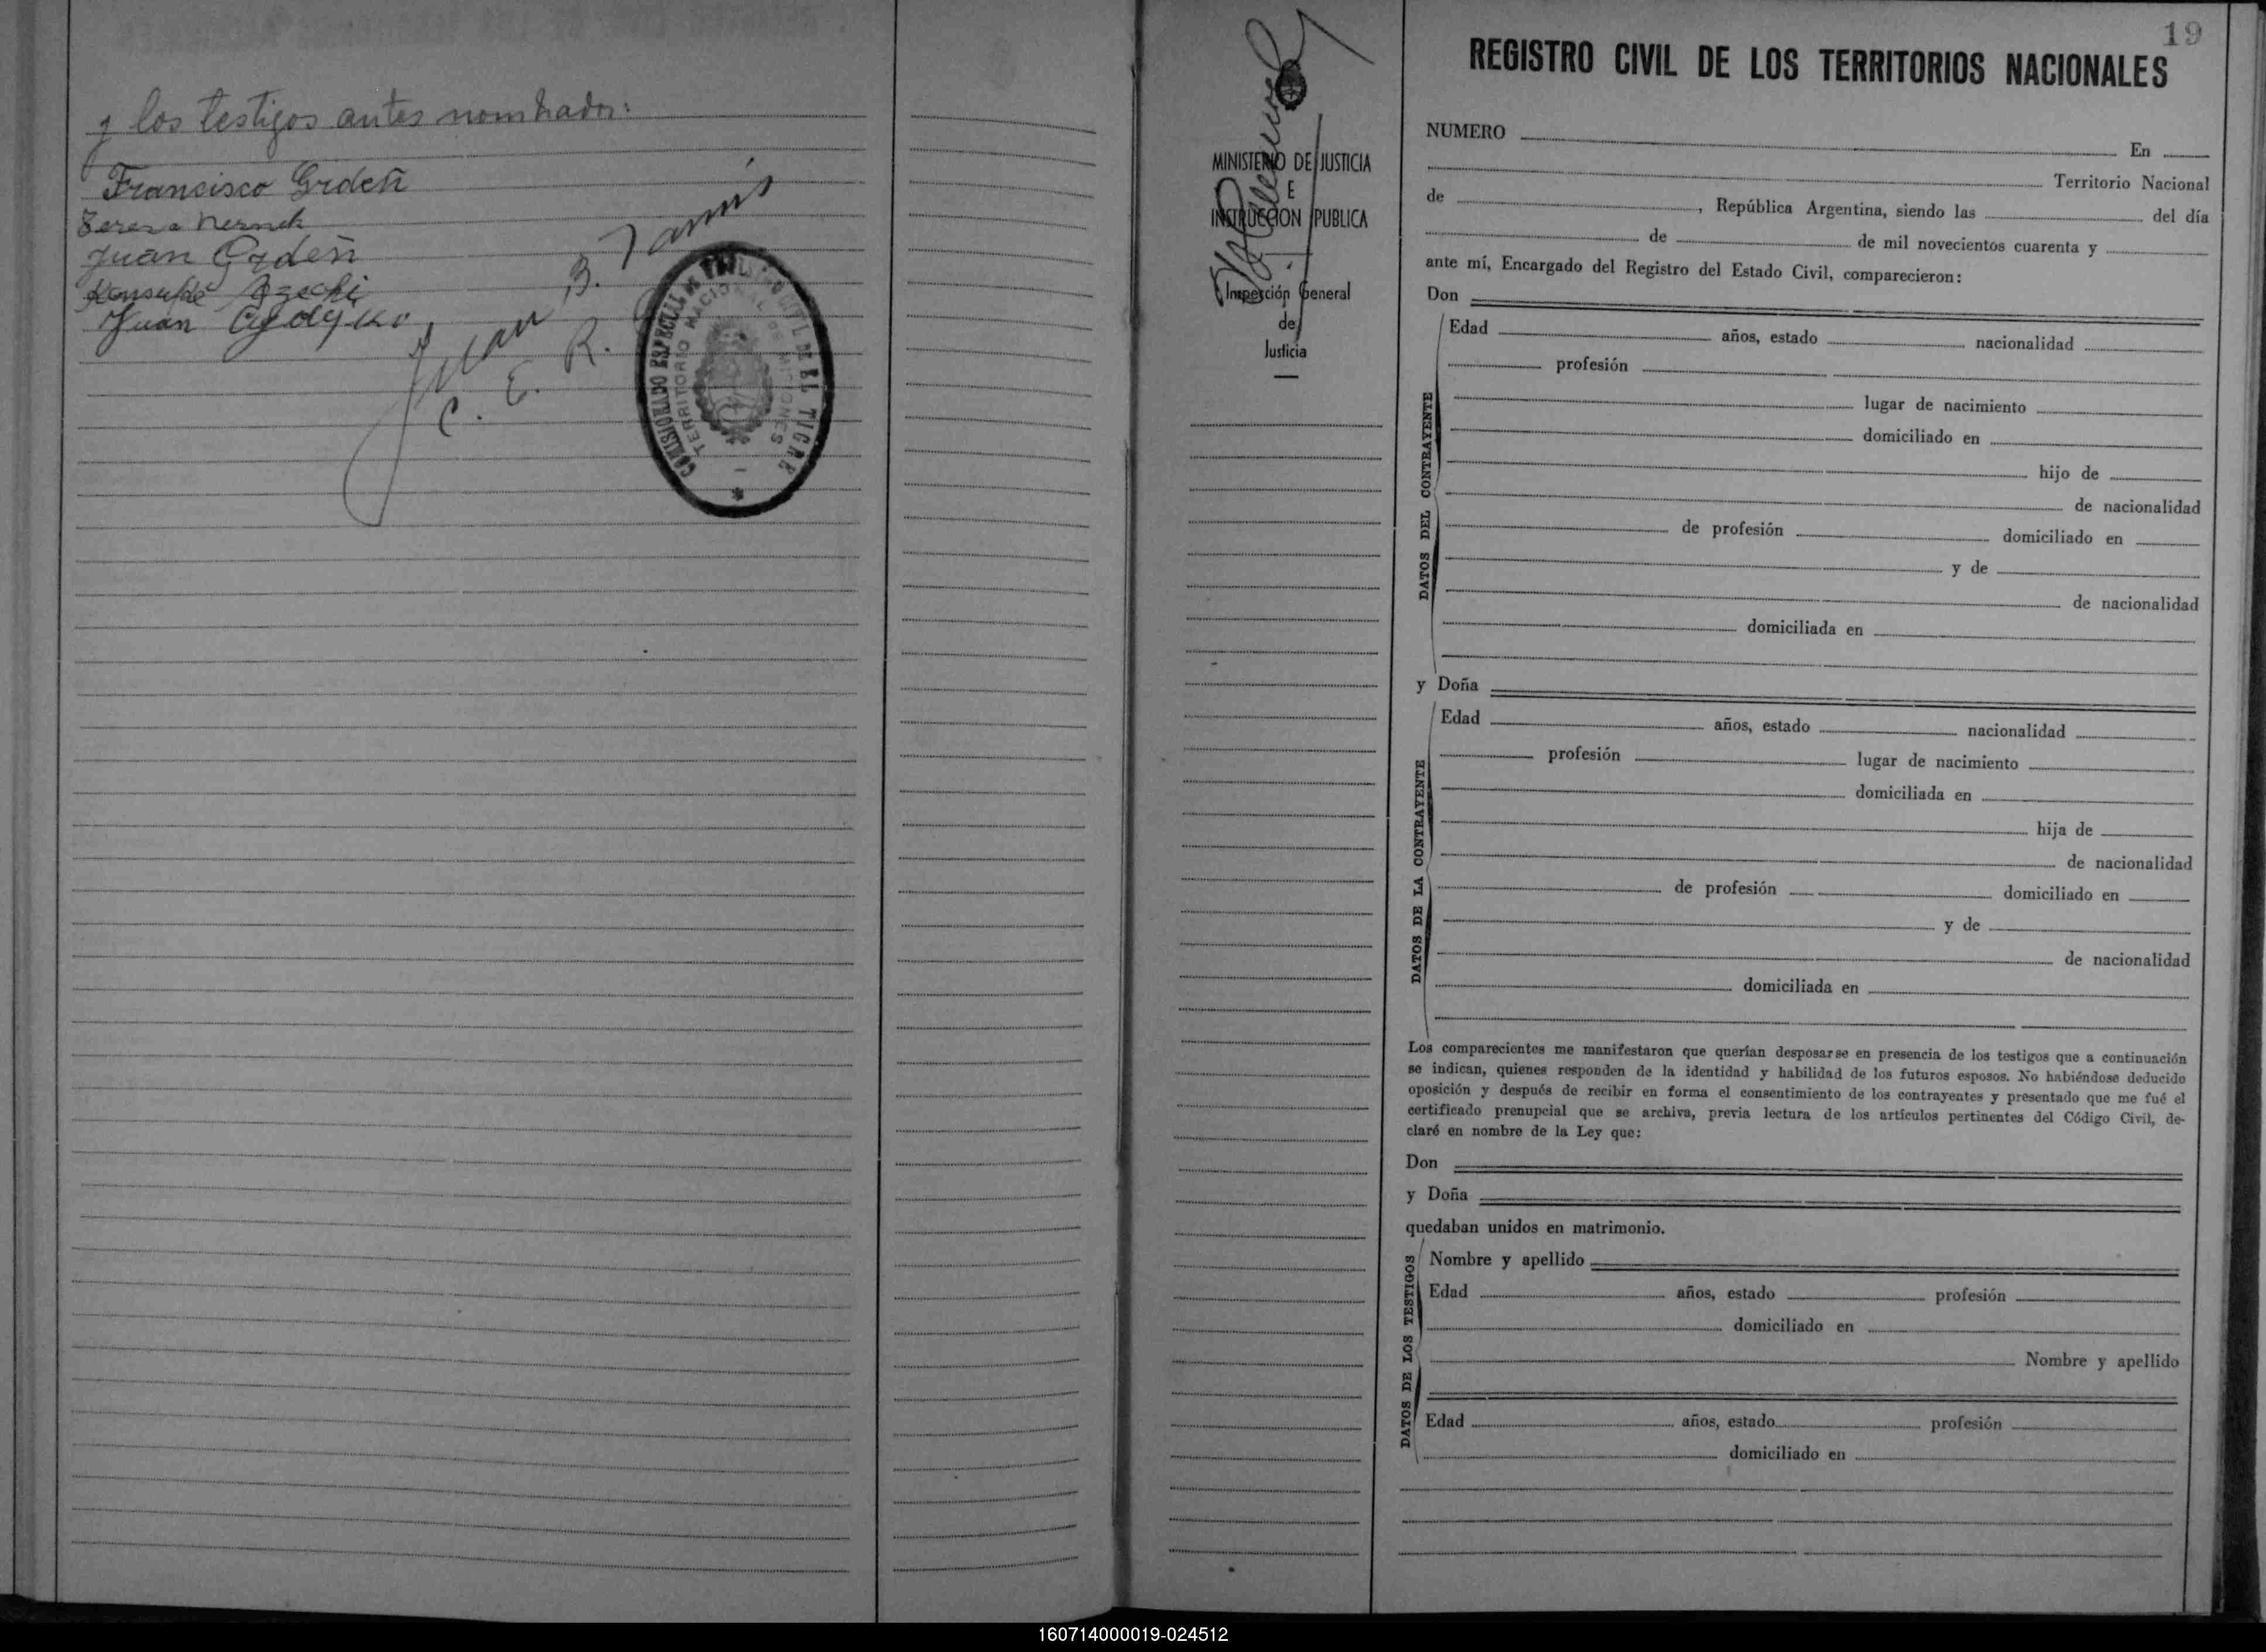 y los testigos antes nombrados:
Francisco Grdeñ
Teresa Nernek
Juan Grdeñ
Juan
Juan B.
C. E. R.
COMISIONADO ESPECIAL DE EL TIGRE
TERRITORIO NACIONAL DE MISIONES
19
REGISTRO CIVIL DE LOS TERRITORIOS NACIONALES
MINISTERIO DE JUSTICIA
E
INSTRUCCION PUBLICA
Inspección General
de
Justicia
NUMERO
En
Territorio Nacional
de , República Argentina, siendo las del día
de de mil novecientos cuarenta y
ante mí, Encargado del Registro del Estado Civil, comparecieron:
Don
DATOS DEL CONTRAYENTE
Edad años, estado nacionalidad
profesión
lugar de nacimiento
domiciliado en
hijo de
de nacionalidad
de profesión domiciliado en
y de
de nacionalidad
domiciliada en
y Doña
DATOS DE LA CONTRAYENTE
Edad años, estado nacionalidad
profesión lugar de nacimiento
domiciliada en
hija de
de nacionalidad
de profesión domiciliado en
y de
de nacionalidad
domiciliada en
Los comparecientes me manifestaron que querían desposarse en presencia de los testigos que a continuación
se indican, quienes responden de la identidad y habilidad de los futuros esposos. No habiéndose deducido
oposición y después de recibir en forma el consentimiento de los contrayentes y presentado que me fué el
certificado prenupcial que se archiva, previa lectura de los artículos pertinentes del Código Civil, de-
claré en nombre de la Ley que:
Don
y Doña
quedaban unidos en matrimonio.
DATOS DE LOS TESTIGOS
Nombre y apellido
Edad años, estado profesión
domiciliado en
Nombre y apellido
Edad años, estado profesión
domiciliado en
160714000019-024512